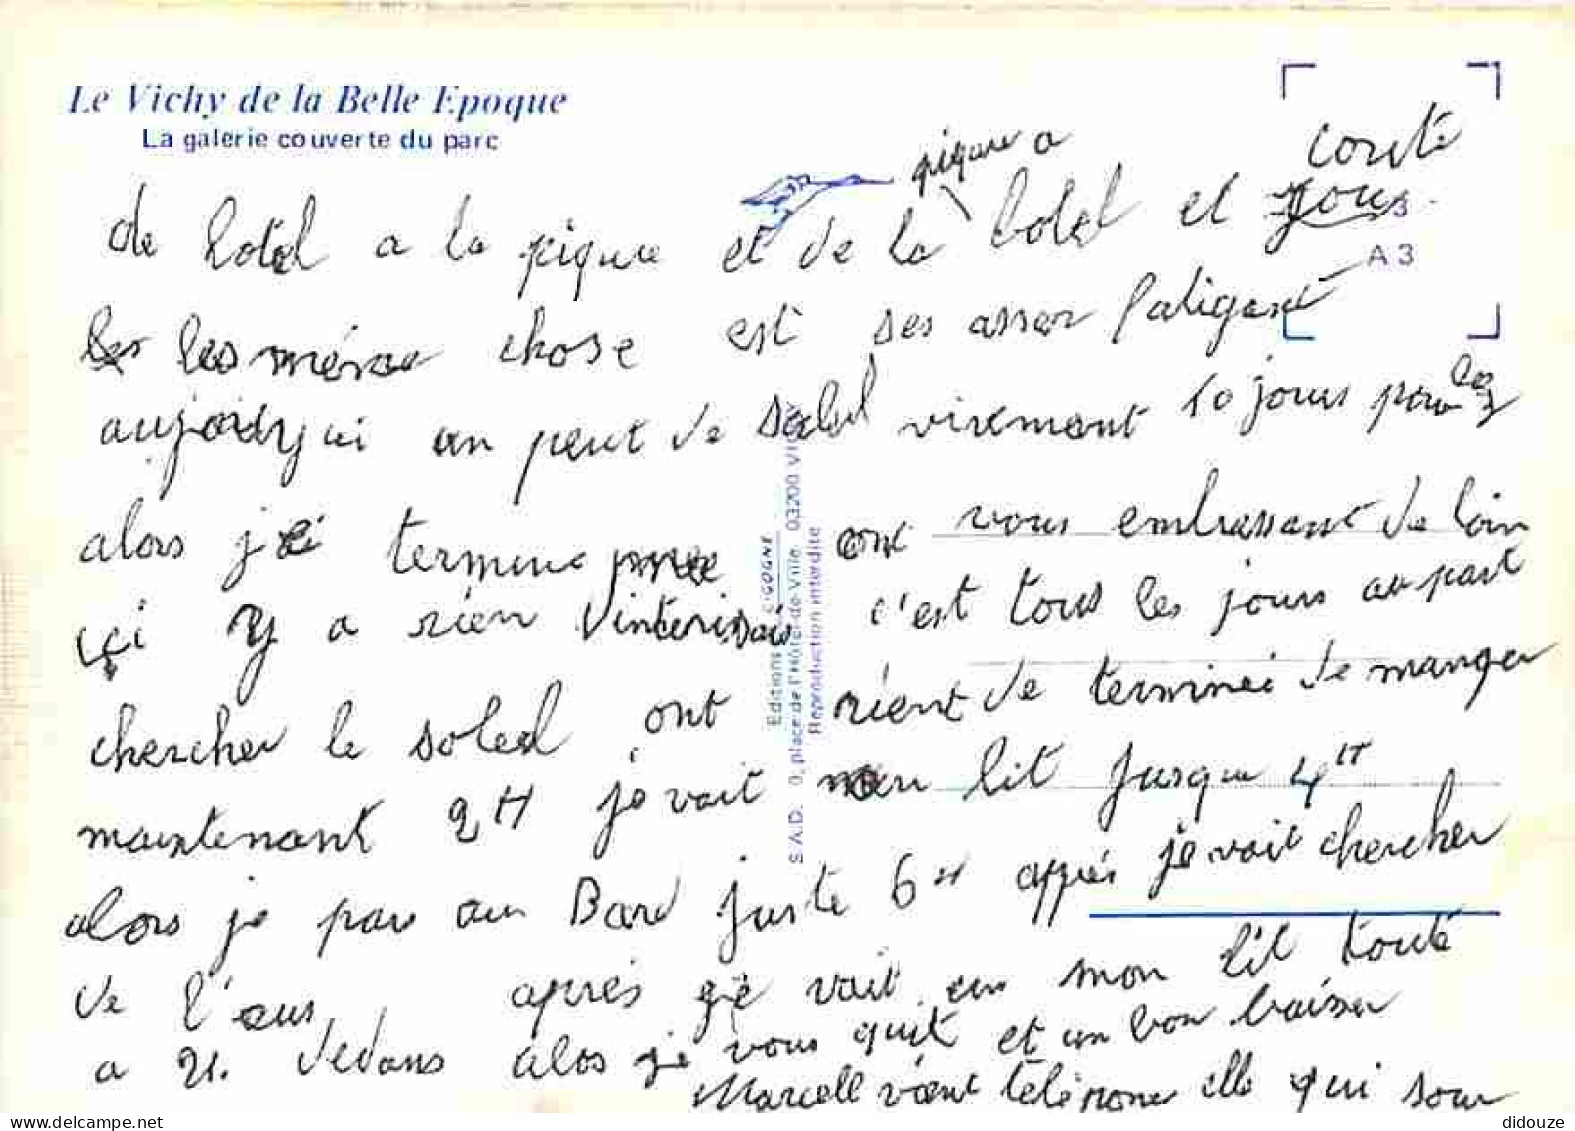 Le Vichy de la Belle Epoque
La galerie couverte du parc
piqure a
couté
de lotel a la piqure et de la lotel et jous
A3
les les méme chose est ses asser fatigant
aujourdy ui un peut de soleil virement 10 jours pour
alors jei termine ont vous embrassant de loin
içi y a rien c'est tous les jours au part
chercher le soleil ont rient de terminei de manger
maintenant 2H je vait lit jusqu 4H
alors je par au Bard juste 6H apprés je vait chercher
de l'aus après je vait en mon lit touté
a 21. dedans alos je vous quit et un bon baisser
Marcell vient téléponer elle qui sour
Editions CIGOGNE
S.A.D. place de l'Hôtel-de-Ville 03200 VICHY
Reproduction interdite
didouze